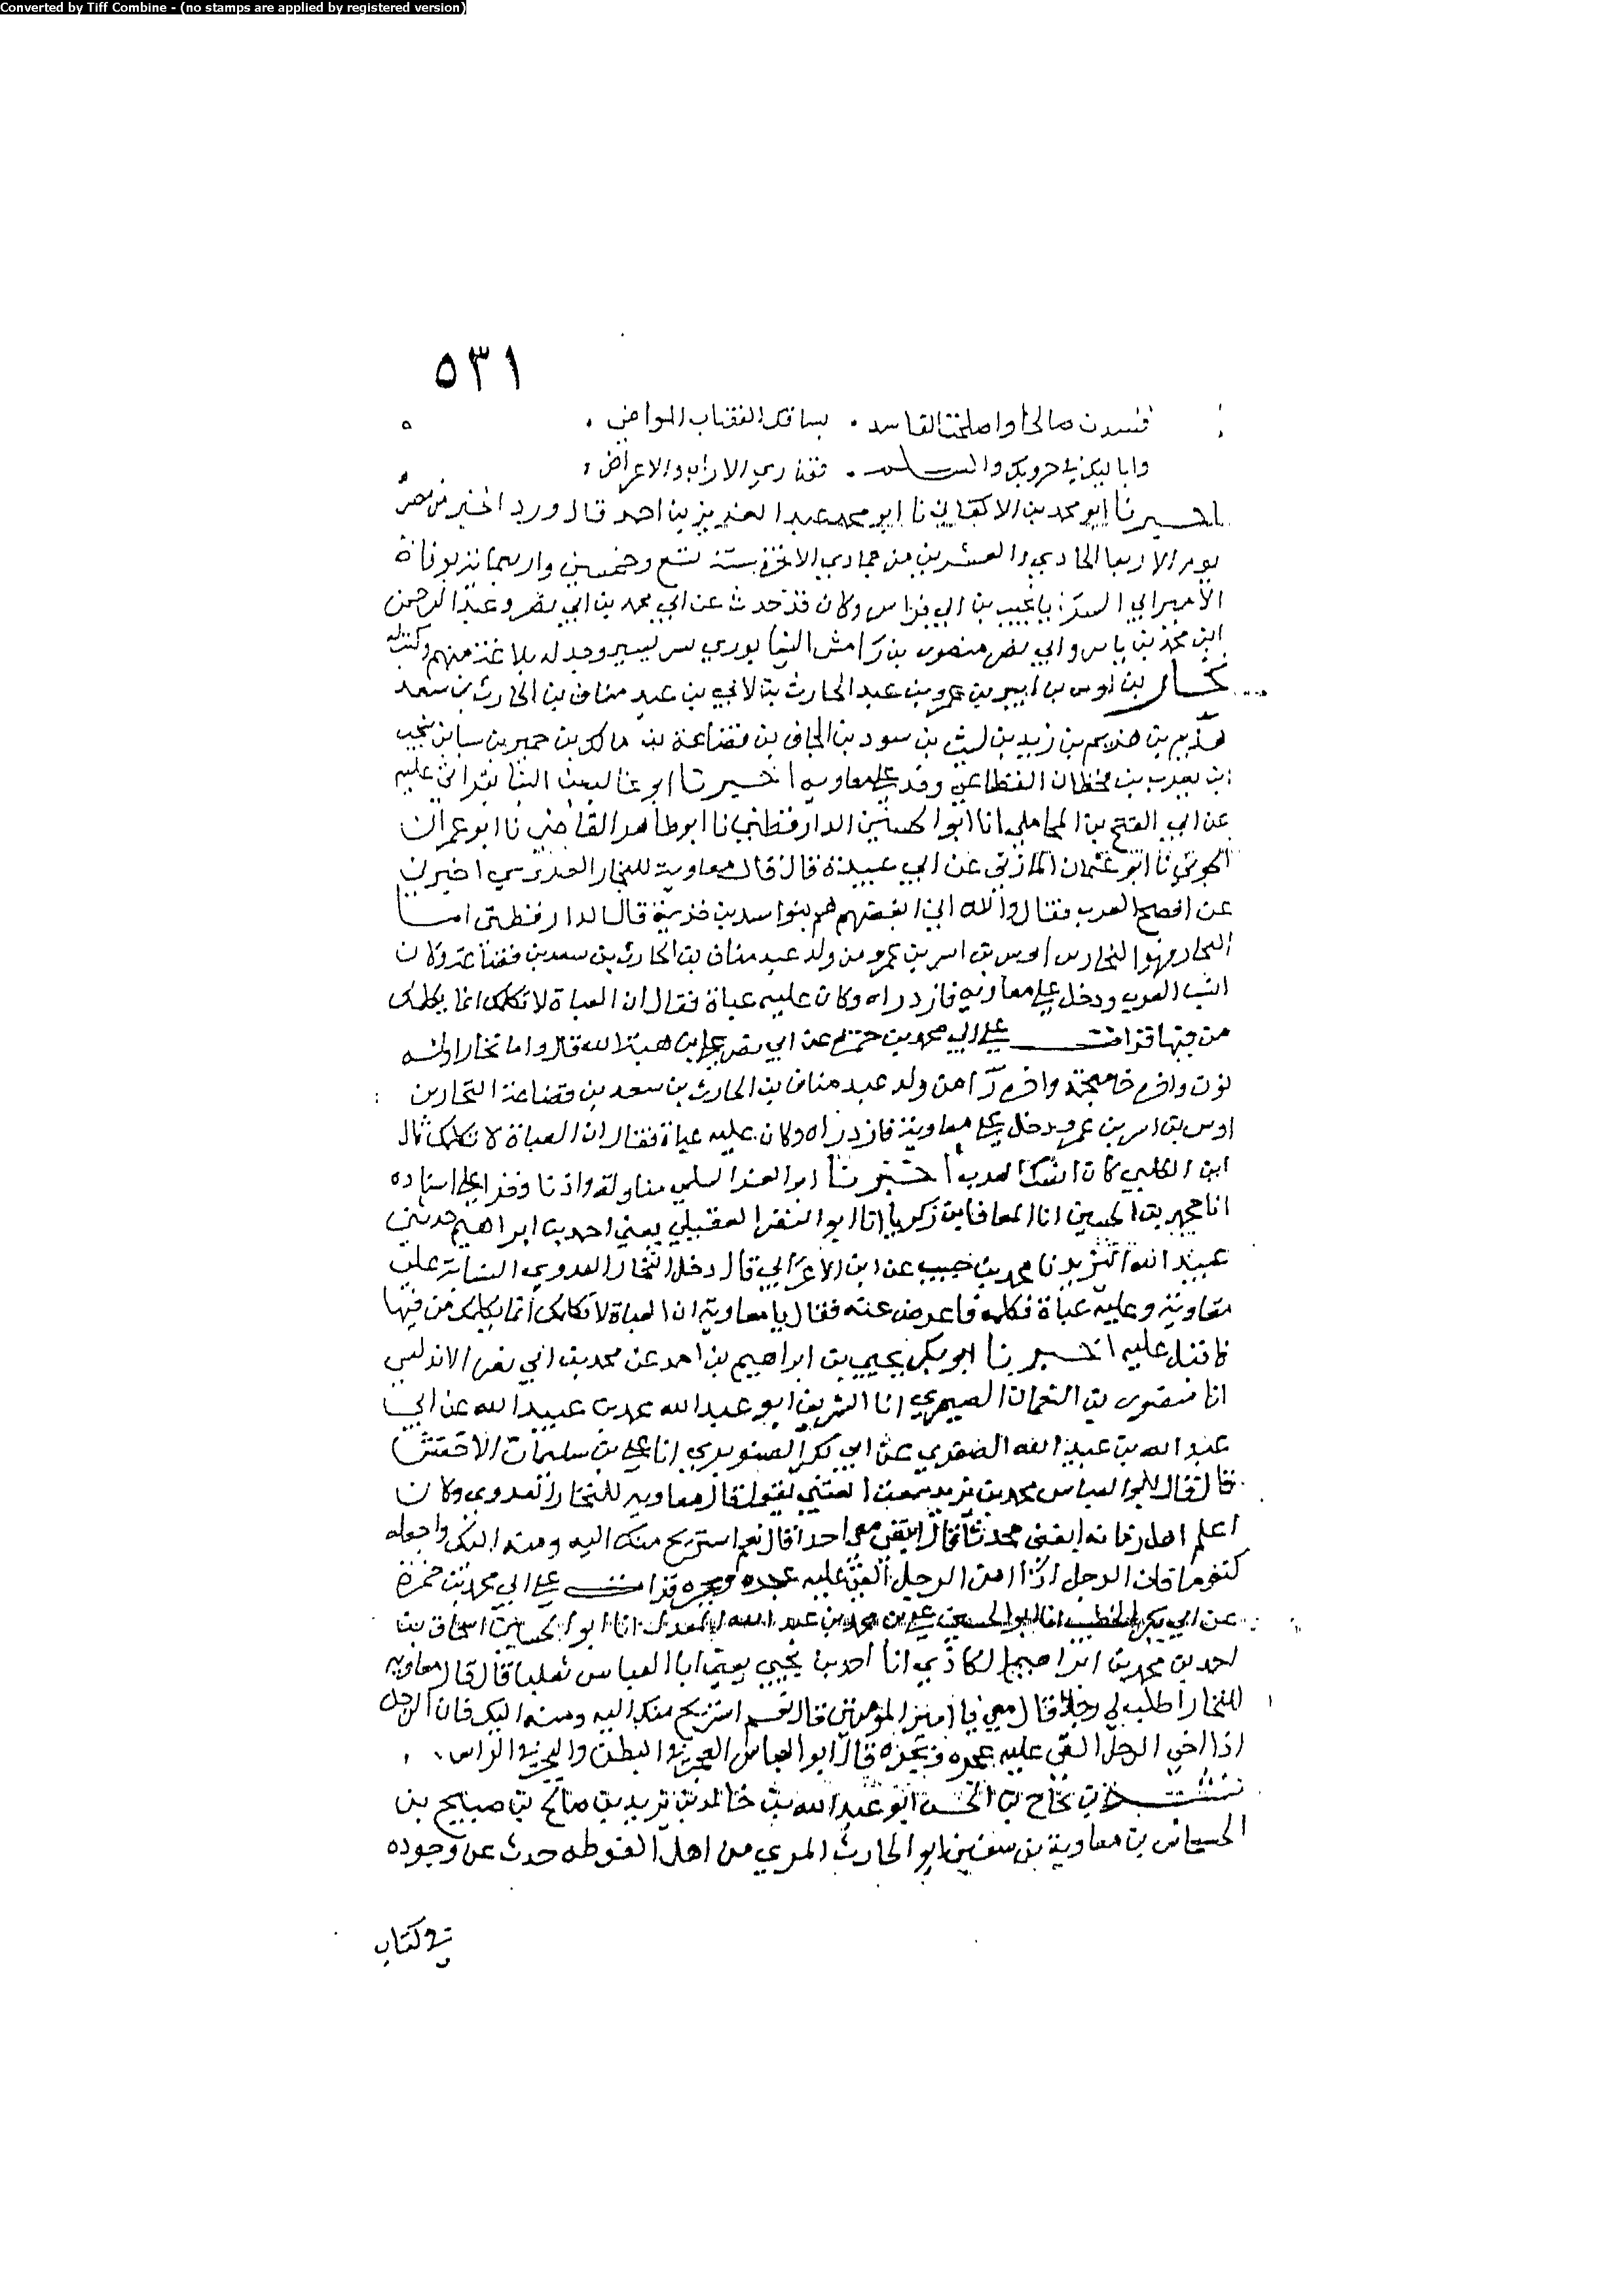 Converted by Tiff Combine - (no stamps are applied by registered version)
٥٣١
فسدن صالحا واصلحت الفاسد . بسافك القضاب المواضي .
وابا ليكن في حروبك والسلم . تقنا ري الاراب والاعراض
اخبرنا ابو محمد بن الاكفاني نا ابو محمد عبد العزيز بن احمد قال ورد الخبر من مصر
يوم الاربعا الحادي والعشرين من جمادي الاخرة سنة تسع وخمسين واربعمائة بوفاة
الامير ابي السرايا نجيب بن ابي فراس وكان قد حدث عن ابي محمد بن ابي نصر وعبد الرحمن
ابن محمد بن ياسر وابي نصر منصور بن رامش النيسابوري بشي يسير وجد له بلاغ منهم وكتب له
نخار بن اوس بن ابير بن عمرو بن عبد الحارث بن لاي بن عبد مناف بن الحارث بن سعد
هذيم بن زيد بن ليث بن سود بن الحاف بن قضاعة بن مالك بن حمير بن سبا بن يشجب
بن يعرب بن قحطان القضاعي وفد على معاوية اخبرنا ابو غالب بن البنا بقراتي عليه
عن ابي الفتح بن المحاملي انا ابو الحسن الدارقطني نا ابو طاهر القاضي نا ابو عمران
الجوني نا ابو عثمان المازني عن ابي عبيدة قال قال معاوية للنخار العذري اخبرني
عن افصح العرب فقال والله اني ابغضهم هم بنو اسد بن خزيمة قال الدارقطني اما
النخار فهو النخار بن اوس بن ابير بن عمرو من ولد عبد مناف بن الحارث بن سعد بن قضاعة وكان
انسب العرب ودخل على معاوية فازدراه وكان عليه عباة فقال ان العباة لا تكلمك انما يكلمك
من فيها قرات على ابي محمد بن حمزة عن ابي نصر علي بن هبة الله قال واما نخار اوله
نون واخره خا معجمة واخره را من ولد عبد مناف بن الحارث بن سعد بن قضاعة النخار بن
اوس بن ابير بن عمرو دخل على معاوية فازدراه وكان عليه عباة فقال ان العباة لا تكلمك قال
ابن الكلبي كان انسب العرب اخبرنا ابو العز السلمي مناولة واذنا وقرا علي اسناده
انا محمد بن الحسين انا المعافا بن زكريا انا ابو النضر العقيلي يعني احمد بن ابراهيم حدثني
عبيد الله اليزيدي نا محمد بن حبيب عن ابن الاعرابي قال دخل النخار العدوي النسابة على
معاوية وعليه عباة فكلمه فاعرض عنه فقال يا معاوية ان العباة لا تكلمك انما يكلمك من فيها
فاقبل عليه اخبرنا ابو بكر يحيي بن ابراهيم بن احمد عن محمد بن ابي نصر الاندلسي
انا منصور بن النعمان الصيمري انا الشريف ابو عبد الله محمد بن عبيد الله عن ابي
عبد الله بن عبيد الله الصفري عن ابي بكر الصنوبري انا علي بن سليمان الاخفش
قال قال لي ابو العباس محمد بن يزيد سمعت العتبي يقول قال معاوية للنخار العدوي وكان
اعلم اهل زمانه ابغني محدثا قال ابتغي معي احدا قال نعم استريح منك اليه ومنه اليك واجعله
كتوما فان الرجل اذا امن الرجل القي عليه عجره وبجره قرات على ابي محمد بن حمزة
عن ابي بكر الخطيب انا ابو الحسين علي بن محمد بن عبد الله المعدل انا ابو الحسين اسحاق بن
احمد بن محمد بن ابراهيم الكاذي انا احمد بن يحيي يعني ابا العباس ثعلبا قال قال معاوية
للنخار اطلب لي رجلا قال معي يا امير المؤمنين قال نعم استريح منك اليه ومنه اليك فان الرجل
اذا اخي الرجل القي عليه عجره وبجره قال ابو العباس العجر في البطن والبجر في الراس .
نجاح بن ابو عبد الله بن خالد بن يزيد بن صالح بن صبيح بن
الحسحاس بن معاوية بن سفين ابو الحارث المري من اهل الغوطة حدث عن وجوده
في كتاب